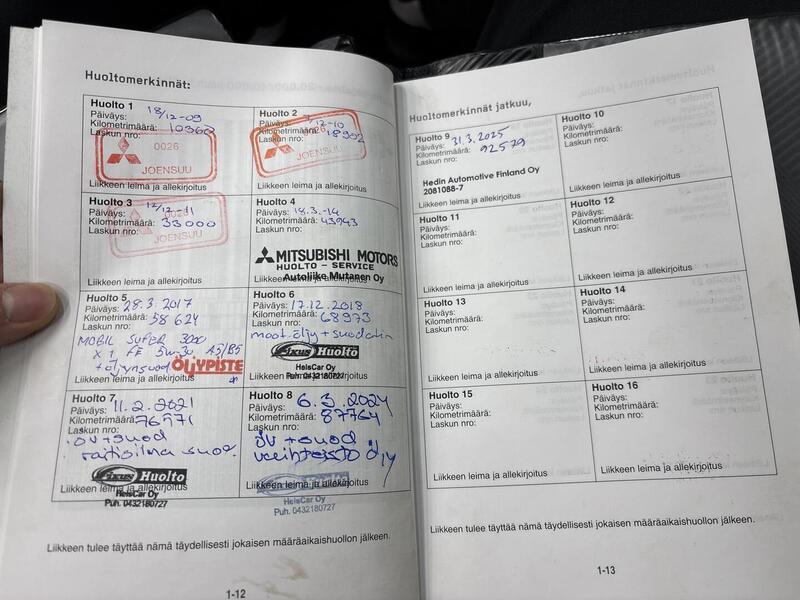 Huoltomerkinnät:
Huolto 1
Päiväys: 18/12-09
Kilometrimäärä: 10360
Laskun nro:
0026
JOENSUU
Liikkeen leima ja allekirjoitus
Huolto 2
Päiväys: /12-10
Kilometrimäärä: 18992
Laskun nro:
JOENSUU
Liikkeen leima ja allekirjoitus
Huolto 3
Päiväys: 12/12-11
Kilometrimäärä: 33000
Laskun nro:
JOENSUU
Liikkeen leima ja allekirjoitus
Huolto 4
Päiväys: 18.3.-14
Kilometrimäärä: 43943
Laskun nro:
MITSUBISHI MOTORS
HUOLTO - SERVICE
Autoliike Mutanen Oy
Liikkeen leima ja allekirjoitus
Huolto 5
Päiväys: 28.3.2017
Kilometrimäärä: 58624
Laskun nro:
MOBIL SUPER 3000
X1 FE 5W-30 A5/B5
+ öljynsuod
ÖLJYPISTE
Liikkeen leima ja allekirjoitus
Huolto 6
Päiväys: 17.12.2018
Kilometrimäärä: 68973
Laskun nro:
moot.öljy + suodatin
Fixus Huolto
HelsCar Oy
Puh. 0432180727
Liikkeen leima ja allekirjoitus
Huolto 7
Päiväys: 11.2.2021
Kilometrimäärä: 76571
Laskun nro:
öv + suod
raitisilma suod.
Fixus Huolto
Liikkeen leima ja allekirjoitus
HelsCar Oy
Puh. 0432180727
Huolto 8
Päiväys: 6.3.2024
Kilometrimäärä: 87764
Laskun nro:
öv + suod
vaihteisto öljy
Liikkeen leima ja allekirjoitus
HelsCar Oy
Puh. 0432180727
Liikkeen tulee täyttää nämä täydellisesti jokaisen määräaikaishuollon jälkeen.
1-12
Huoltomerkinnät jatkuu,
Huolto 9
Päiväys: 31.3.2025
Kilometrimäärä: 92579
Laskun nro:
Hedin Automotive Finland Oy
2081088-7
Liikkeen leima ja allekirjoitus
Huolto 10
Päiväys:
Kilometrimäärä:
Laskun nro:
Liikkeen leima ja allekirjoitus
Huolto 11
Päiväys:
Kilometrimäärä:
Laskun nro:
Liikkeen leima ja allekirjoitus
Huolto 12
Päiväys:
Kilometrimäärä:
Laskun nro:
Liikkeen leima ja allekirjoitus
Huolto 13
Päiväys:
Kilometrimäärä:
Laskun nro:
Liikkeen leima ja allekirjoitus
Huolto 14
Päiväys:
Kilometrimäärä:
Laskun nro:
Liikkeen leima ja allekirjoitus
Huolto 15
Päiväys:
Kilometrimäärä:
Laskun nro:
Liikkeen leima ja allekirjoitus
Huolto 16
Päiväys:
Kilometrimäärä:
Laskun nro:
Liikkeen leima ja allekirjoitus
Liikkeen tulee täyttää nämä täydellisesti jokaisen määräaikaishuollon jälkeen.
1-13